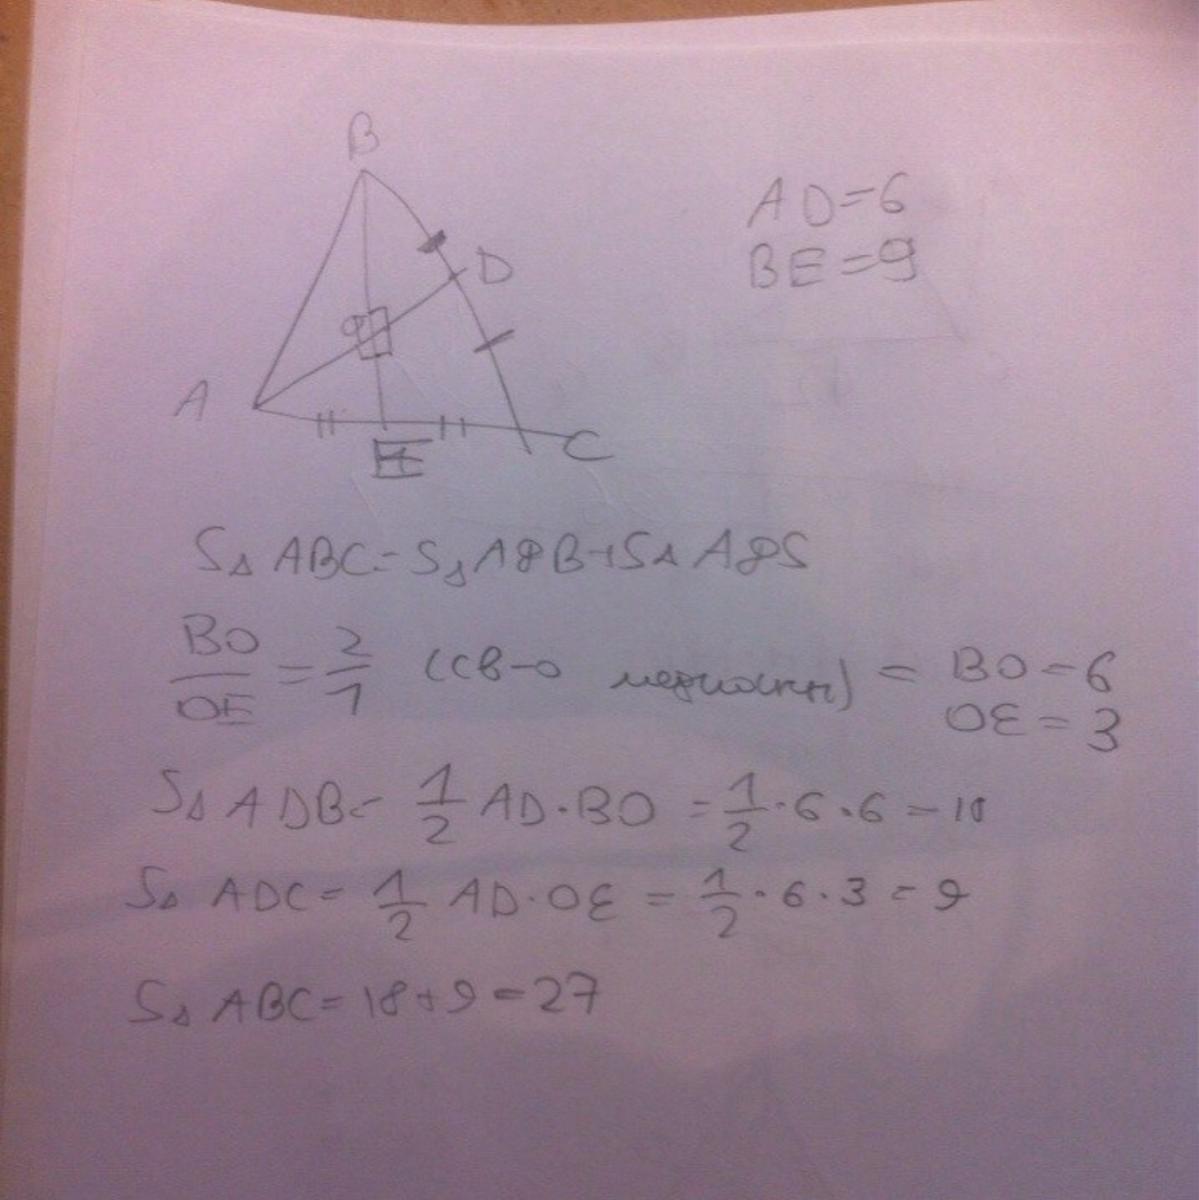 B
AD=6
BE=9
D
O
A
E
C
S△ ABC=S△ADB+S△ ADS
BO/OE = 2/1 (св-о медианы) = BO=6
OE=3
S△ ADB= 1/2 AD·BO = 1/2·6·6=18
S△ ADC= 1/2 AD·OE = 1/2·6·3=9
S△ ABC=18+9=27